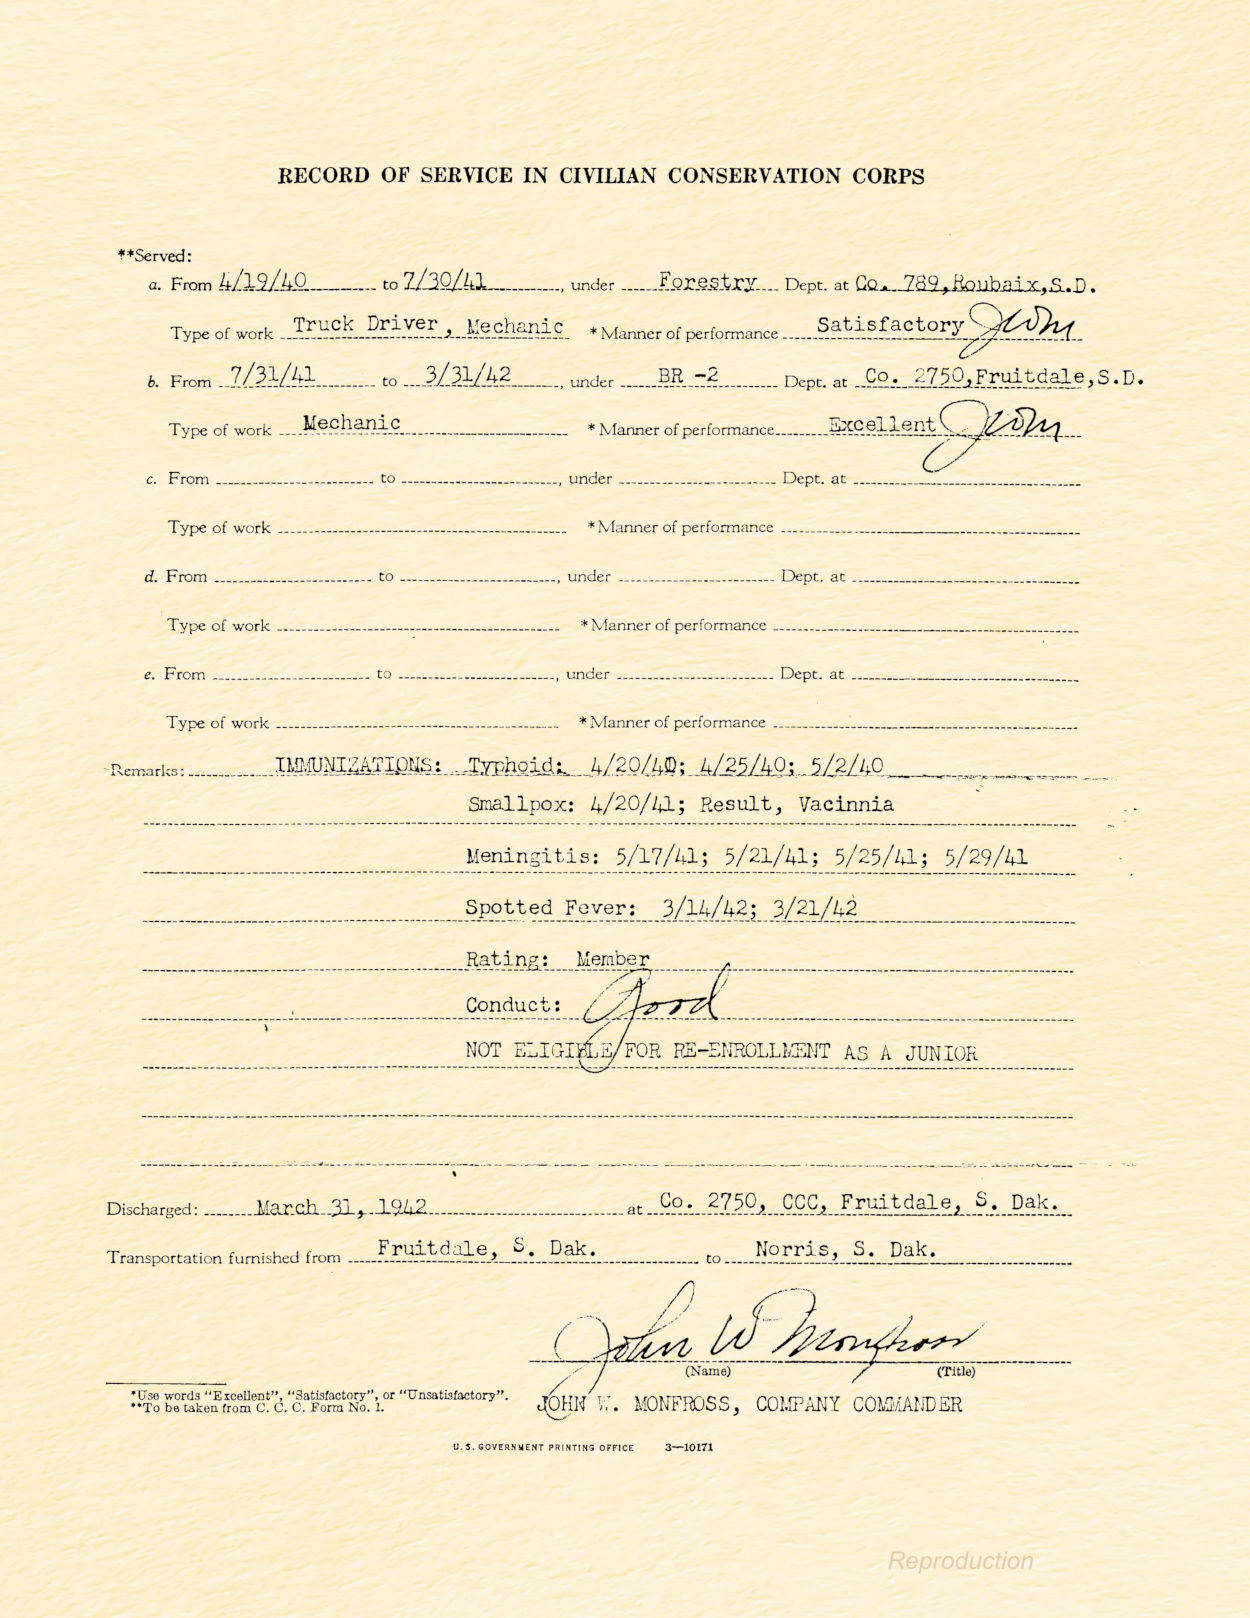 RECORD OF SERVICE IN CIVILIAN CONSERVATION CORPS
**Served:
a. From 4/19/40 to 7/30/41, under Forestry Dept. at Co. 789, Roubaix, S.D.
Type of work Truck Driver, Mechanic *Manner of performance Satisfactory JWM
b. From 7/31/41 to 3/31/42, under BR -2 Dept. at Co. 2750, Fruitdale, S.D.
Type of work Mechanic *Manner of performance Excellent JWM
c. From to , under Dept. at
Type of work *Manner of performance
d. From to , under Dept. at
Type of work *Manner of performance
e. From to , under Dept. at
Type of work *Manner of performance
Remarks: IMMUNIZATIONS: Typhoid: 4/20/40; 4/25/40; 5/2/40
Smallpox: 4/20/41; Result, Vacinnia
Meningitis: 5/17/41; 5/21/41; 5/25/41; 5/29/41
Spotted Fever: 3/14/42; 3/21/42
Rating: Member
Conduct: Good
NOT ELIGIBLE FOR RE-ENROLLMENT AS A JUNIOR
Discharged: March 31, 1942 at Co. 2750, CCC, Fruitdale, S. Dak.
Transportation furnished from Fruitdale, S. Dak. to Norris, S. Dak.
John W Monfross
(Name) (Title)
JOHN W. MONFROSS, COMPANY COMMANDER
*Use words "Excellent", "Satisfactory", or "Unsatisfactory".
**To be taken from C. C. C. Form No. 1.
U. S. GOVERNMENT PRINTING OFFICE 3—10171
Reproduction